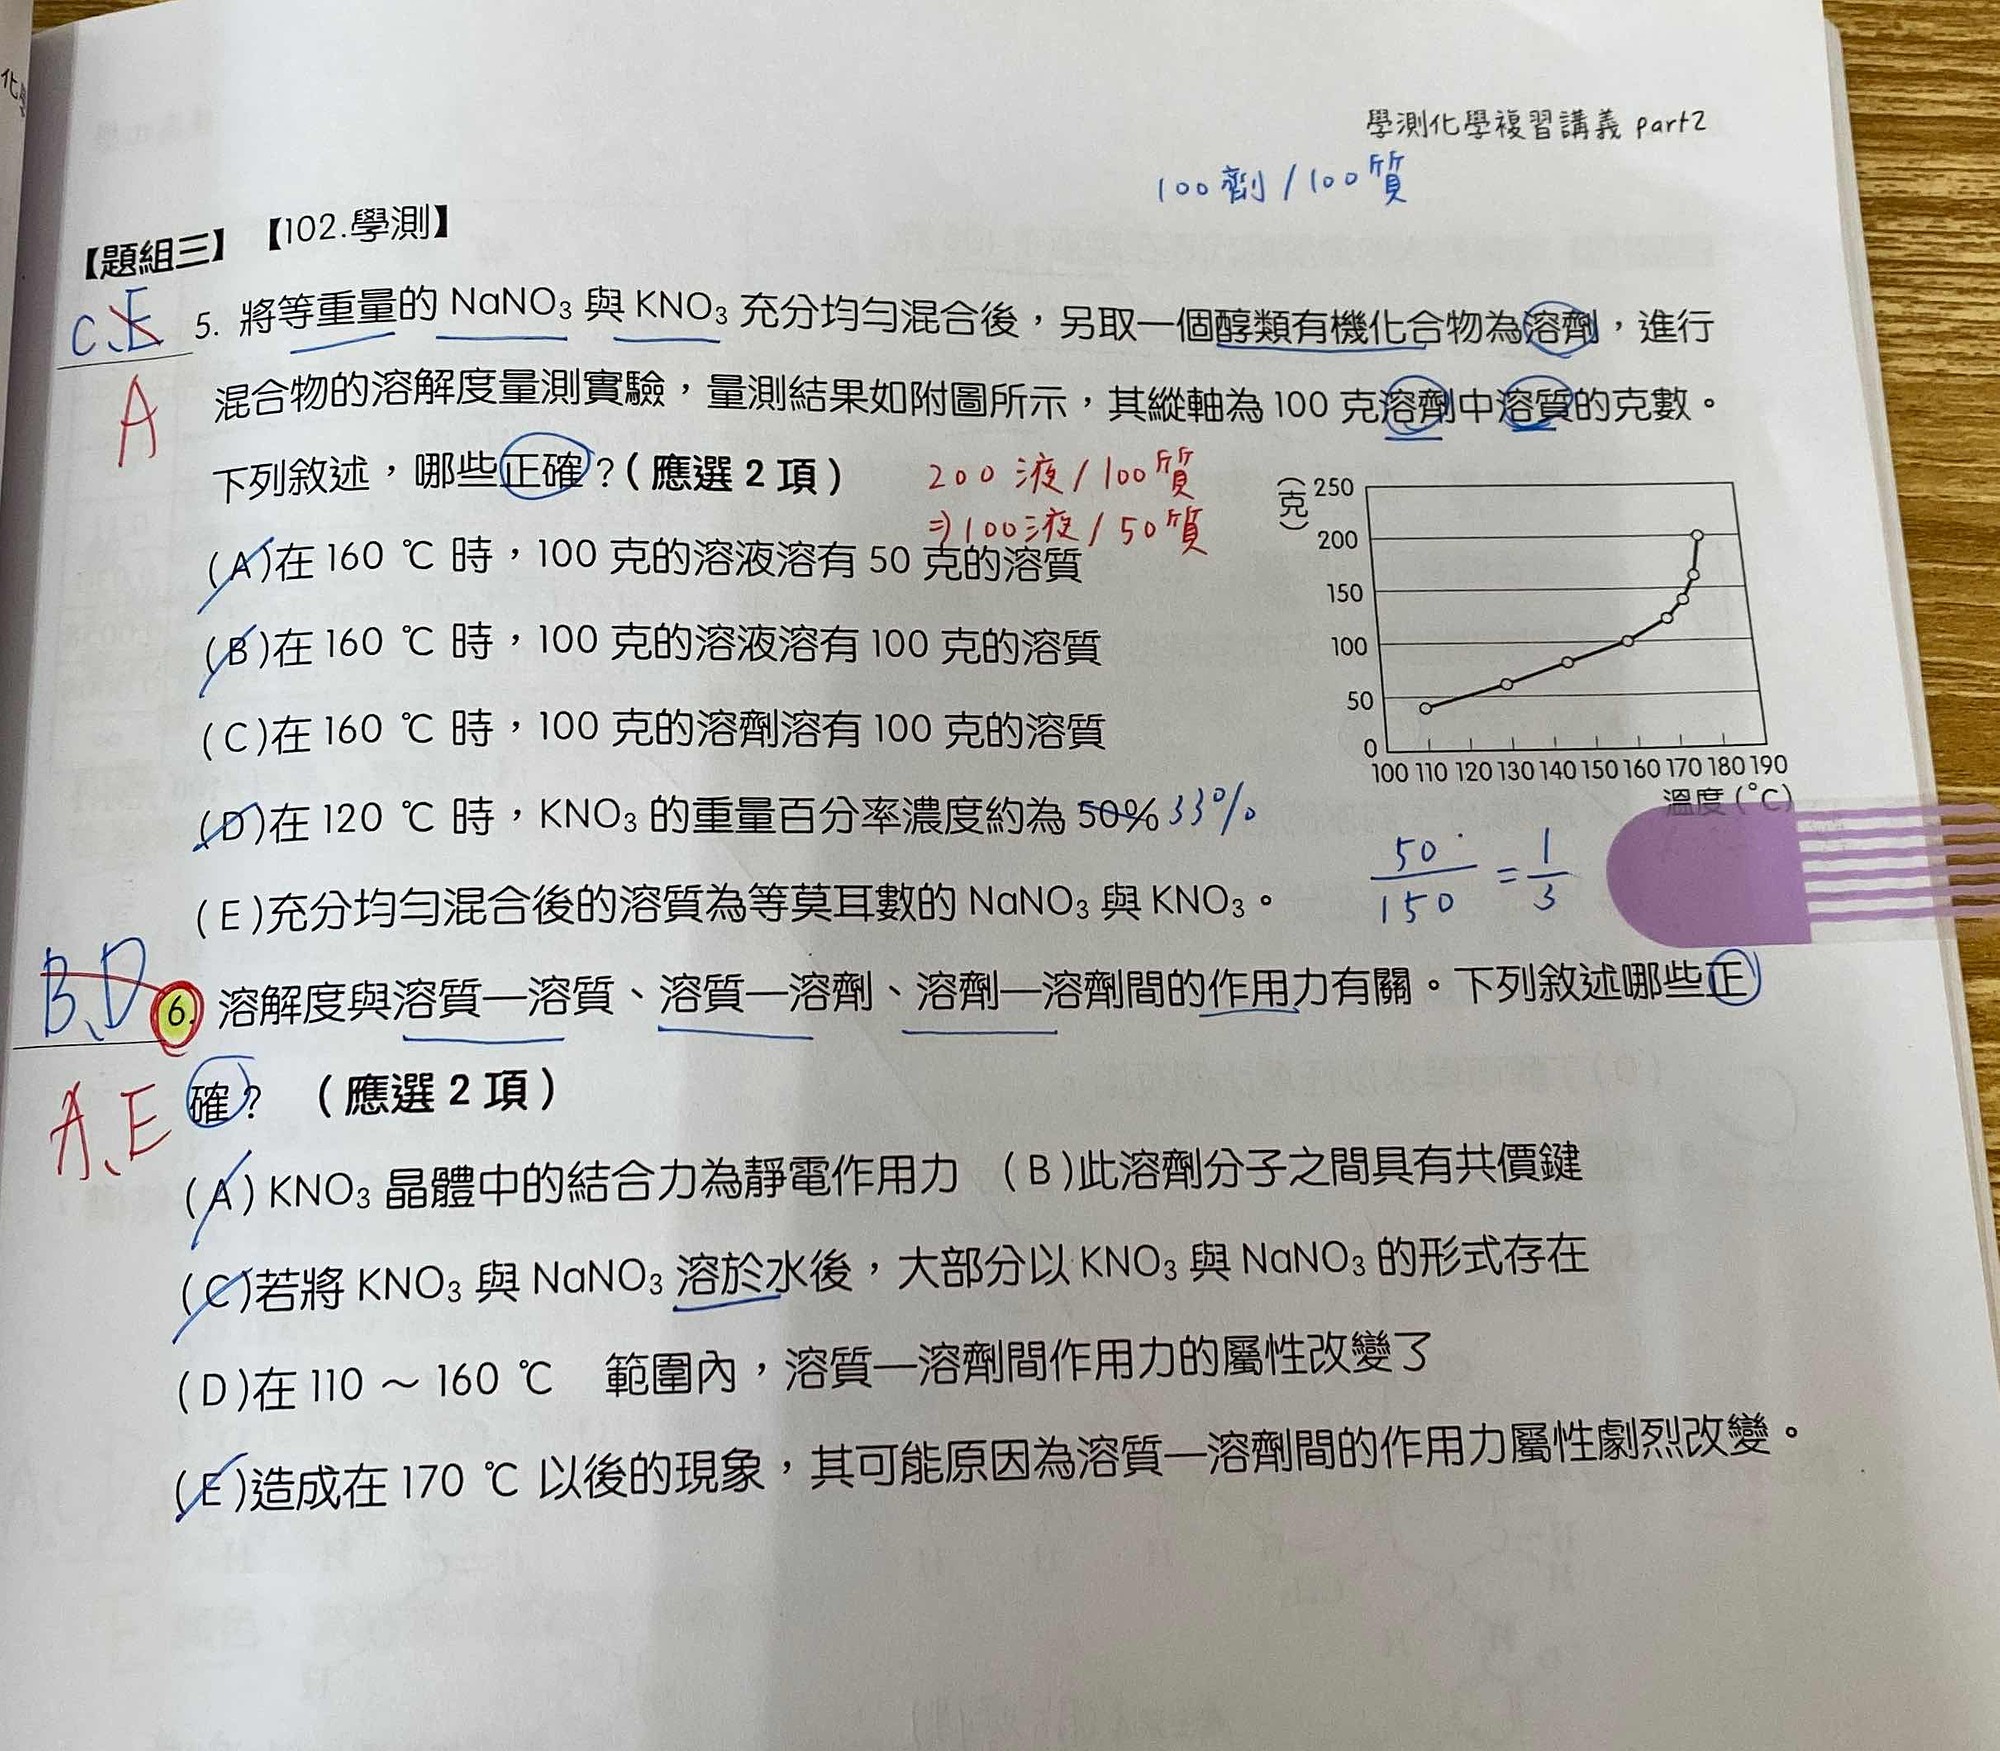 化學
學測化學複習講義 part2
100劑/100質
【題組三】【102.學測】
C、E
A
5. 將等重量的 NaNO₃ 與 KNO₃ 充分均勻混合後，另取一個醇類有機化合物為溶劑，進行
混合物的溶解度量測實驗，量測結果如附圖所示，其縱軸為 100 克溶劑中溶質的克數。
下列敘述，哪些正確？（應選 2 項）
200液/100質
⇒100液/50質
(A)在 160 ℃ 時，100 克的溶液溶有 50 克的溶質
(B)在 160 ℃ 時，100 克的溶液溶有 100 克的溶質
(C)在 160 ℃ 時，100 克的溶劑溶有 100 克的溶質
(D)在 120 ℃ 時，KNO₃ 的重量百分率濃度約為 50% 33%
(E)充分均勻混合後的溶質為等莫耳數的 NaNO₃ 與 KNO₃。
（克）
250
200
150
100
50
0
100 110 120 130 140 150 160 170 180 190
溫度(℃)
50/150 = 1/3
B、D
A、E
6. 溶解度與溶質—溶質、溶質—溶劑、溶劑—溶劑間的作用力有關。下列敘述哪些正
確？（應選 2 項）
(A) KNO₃ 晶體中的結合力為靜電作用力 (B)此溶劑分子之間具有共價鍵
(C)若將 KNO₃ 與 NaNO₃ 溶於水後，大部分以 KNO₃ 與 NaNO₃ 的形式存在
(D)在 110 ～ 160 ℃ 範圍內，溶質—溶劑間作用力的屬性改變了
(E)造成在 170 ℃ 以後的現象，其可能原因為溶質—溶劑間的作用力屬性劇烈改變。